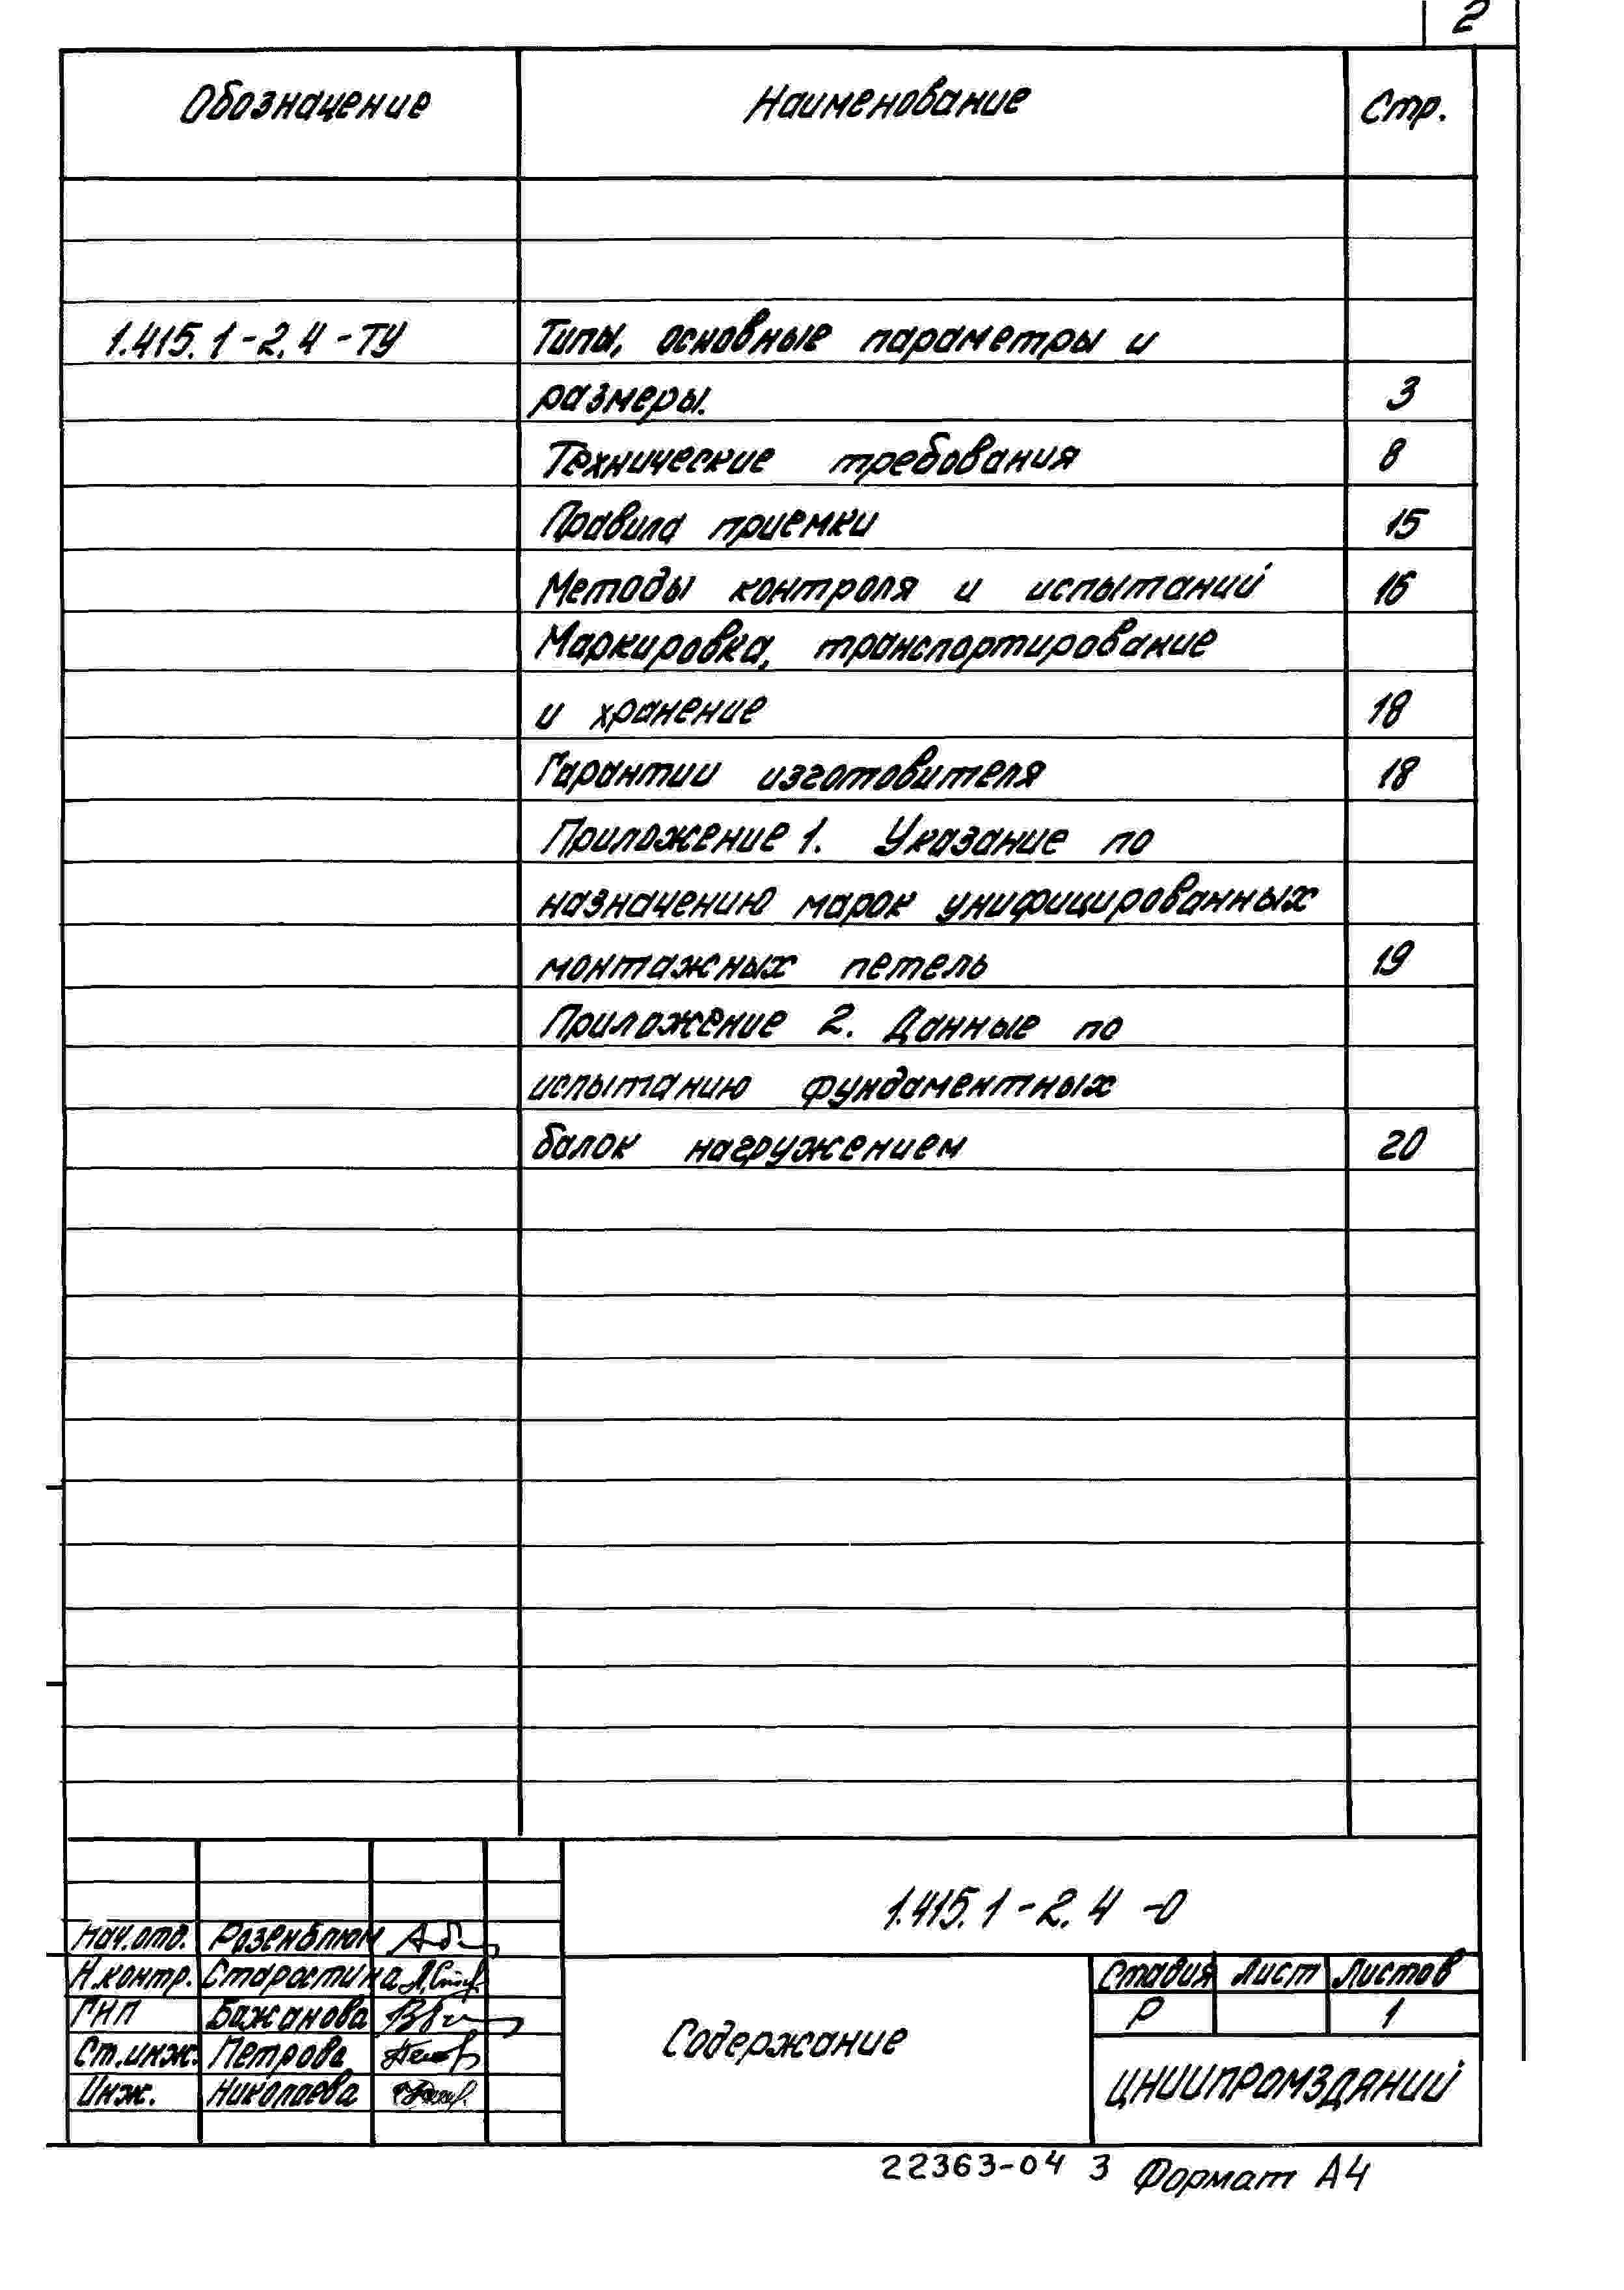 2
Обозначение Наименование Стр.
1.415.1-2.4-ТУ Типы, основные параметры и
размеры. 3
Технические требования 8
Правила приемки 15
Методы контроля и испытаний 16
Маркировка, транспортирование
и хранение 18
Гарантии изготовителя 18
Приложение 1. Указание по
назначению марок унифицированных
монтажных петель 19
Приложение 2. Данные по
испытанию фундаментных
балок нагружением 20
1.415.1-2.4-0
Нач.отд. Розенблюм
Н.контр. Старостина
ГИП Бажанова
Ст.инж. Петрова
Инж. Николаева
Содержание
Стадия Лист Листов
Р 1
ЦНИИПРОМЗДАНИЙ
22363-04 3 Формат А4